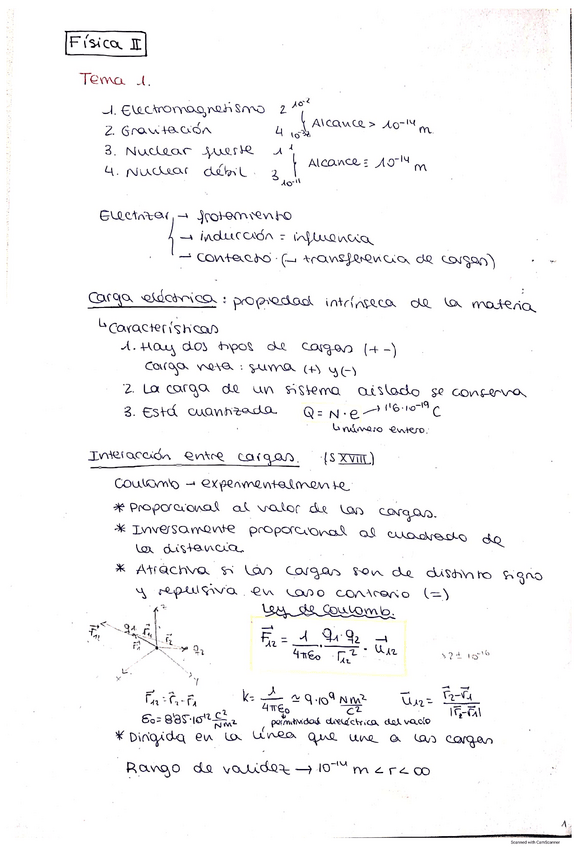 Física II
Tema 1.
1. Electromagnetismo 2 10⁻²
2. Gravitación 4 Alcance > 10⁻¹⁴ m
3. Nuclear fuerte 1 1
4. Nuclear débil 3 10⁻¹¹ Alcance = 10⁻¹⁴ m
Electrizar → frotamiento
→ inducción = influencia
→ contacto (→ transferencia de cargas)
Carga eléctrica: propiedad intrínseca de la materia
↳ Características
1. Hay dos tipos de cargas (+ -)
carga neta: suma (+) y (-)
2. La carga de un sistema aislado se conserva
3. Está cuantizada Q = N·e → 1'6·10⁻¹⁹ C
↳ número entero.
Interacción entre cargas. (S XVIII)
Coulomb → experimentalmente
* Proporcional al valor de las cargas.
* Inversamente proporcional al cuadrado de
la distancia.
* Atractiva si las cargas son de distinto signo
y repulsiva en caso contrario (=)
Ley de Coulomb.
F⃗₁₂ = 1/4πε₀ · q₁·q₂/r₁₂² · u⃗₁₂
z q₁ r⃗₁ r⃗₂ q₂ x y
r⃗₁₂ = r⃗₂ - r⃗₁ k = 1/4πε₀ ≃ 9·10⁹ Nm²/C² u⃗₁₂ = r⃗₂-r⃗₁/|r⃗₂-r⃗₁|
ε₀ = 8'85·10⁻¹² C²/Nm² permitividad dieléctrica del vacío
* Dirigida en la línea que une a las cargas
Rango de validez → 10⁻¹⁴ m < r < ∞
1
Scanned with CamScanner